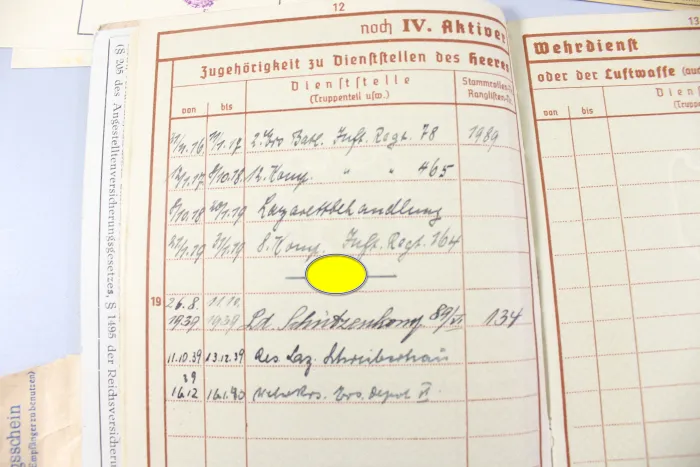 12
noch IV. Aktiver
Zugehörigkeit zu Dienststellen des Heeres
von
bis
Dienststelle
(Truppenteil usw.)
Stammrollen-
Ranglisten-Nr.
2. Ers Batl. Inft. Regt. 78
1989
12. Komp. " " 465
8/10.18 20/1.19 Lazarettbehandlung
21/1.19 31/1.19 8. Komp. Inft. Regt. 164
19
26.8. 1939
01.10. 1939
Ld. Schützenkomp 134
11.10.39 13.12.39 Res Laz. Schreiberhau
39
16.12 16.1.40 Ers. Depot
13
Wehrdienst
oder der Luftwaffe
von
bis
(§ 205 des Angestelltenversicherungsgesetzes, § 1495 der Reichsversicher
gsschein
Empfänger zu benutzen)